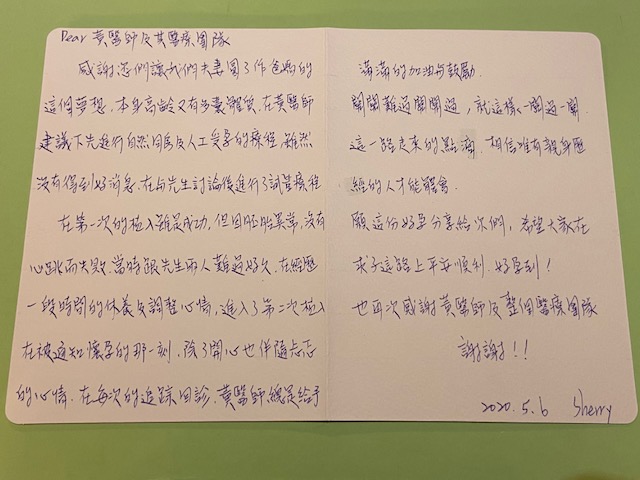 Dear 黃醫師及其醫療團隊
感謝您們讓我們夫妻圓了作爸媽的
這個夢想．本身高齡又有多囊體質．在黃醫師
建議下先進行自然同房及人工受孕的療程．雖然
沒有得到好消息．在與先生討論後進行了試管療程
在第一次的植入雖是成功．但因胚胎異常．沒有
心跳而失敗．當時跟先生兩人難過好久．在經歷
一段時間的休養及調整心情．進入了第二次植入
在被通知懷孕的那一刻．除了開心也伴隨忐忑
的心情．在每次的追蹤回診．黃醫師總是給予
滿滿的加油與鼓勵．
關關難過關關過，就這樣一關過一關
這一路走來的點滴．相信唯有親身歷
經的人才能體會．
願這份好孕分享給你們，希望大家在
求子這路上平安順利．好孕到！
也再次感謝黃醫師及整個醫療團隊
謝謝！！
2020.5.6 Sherry